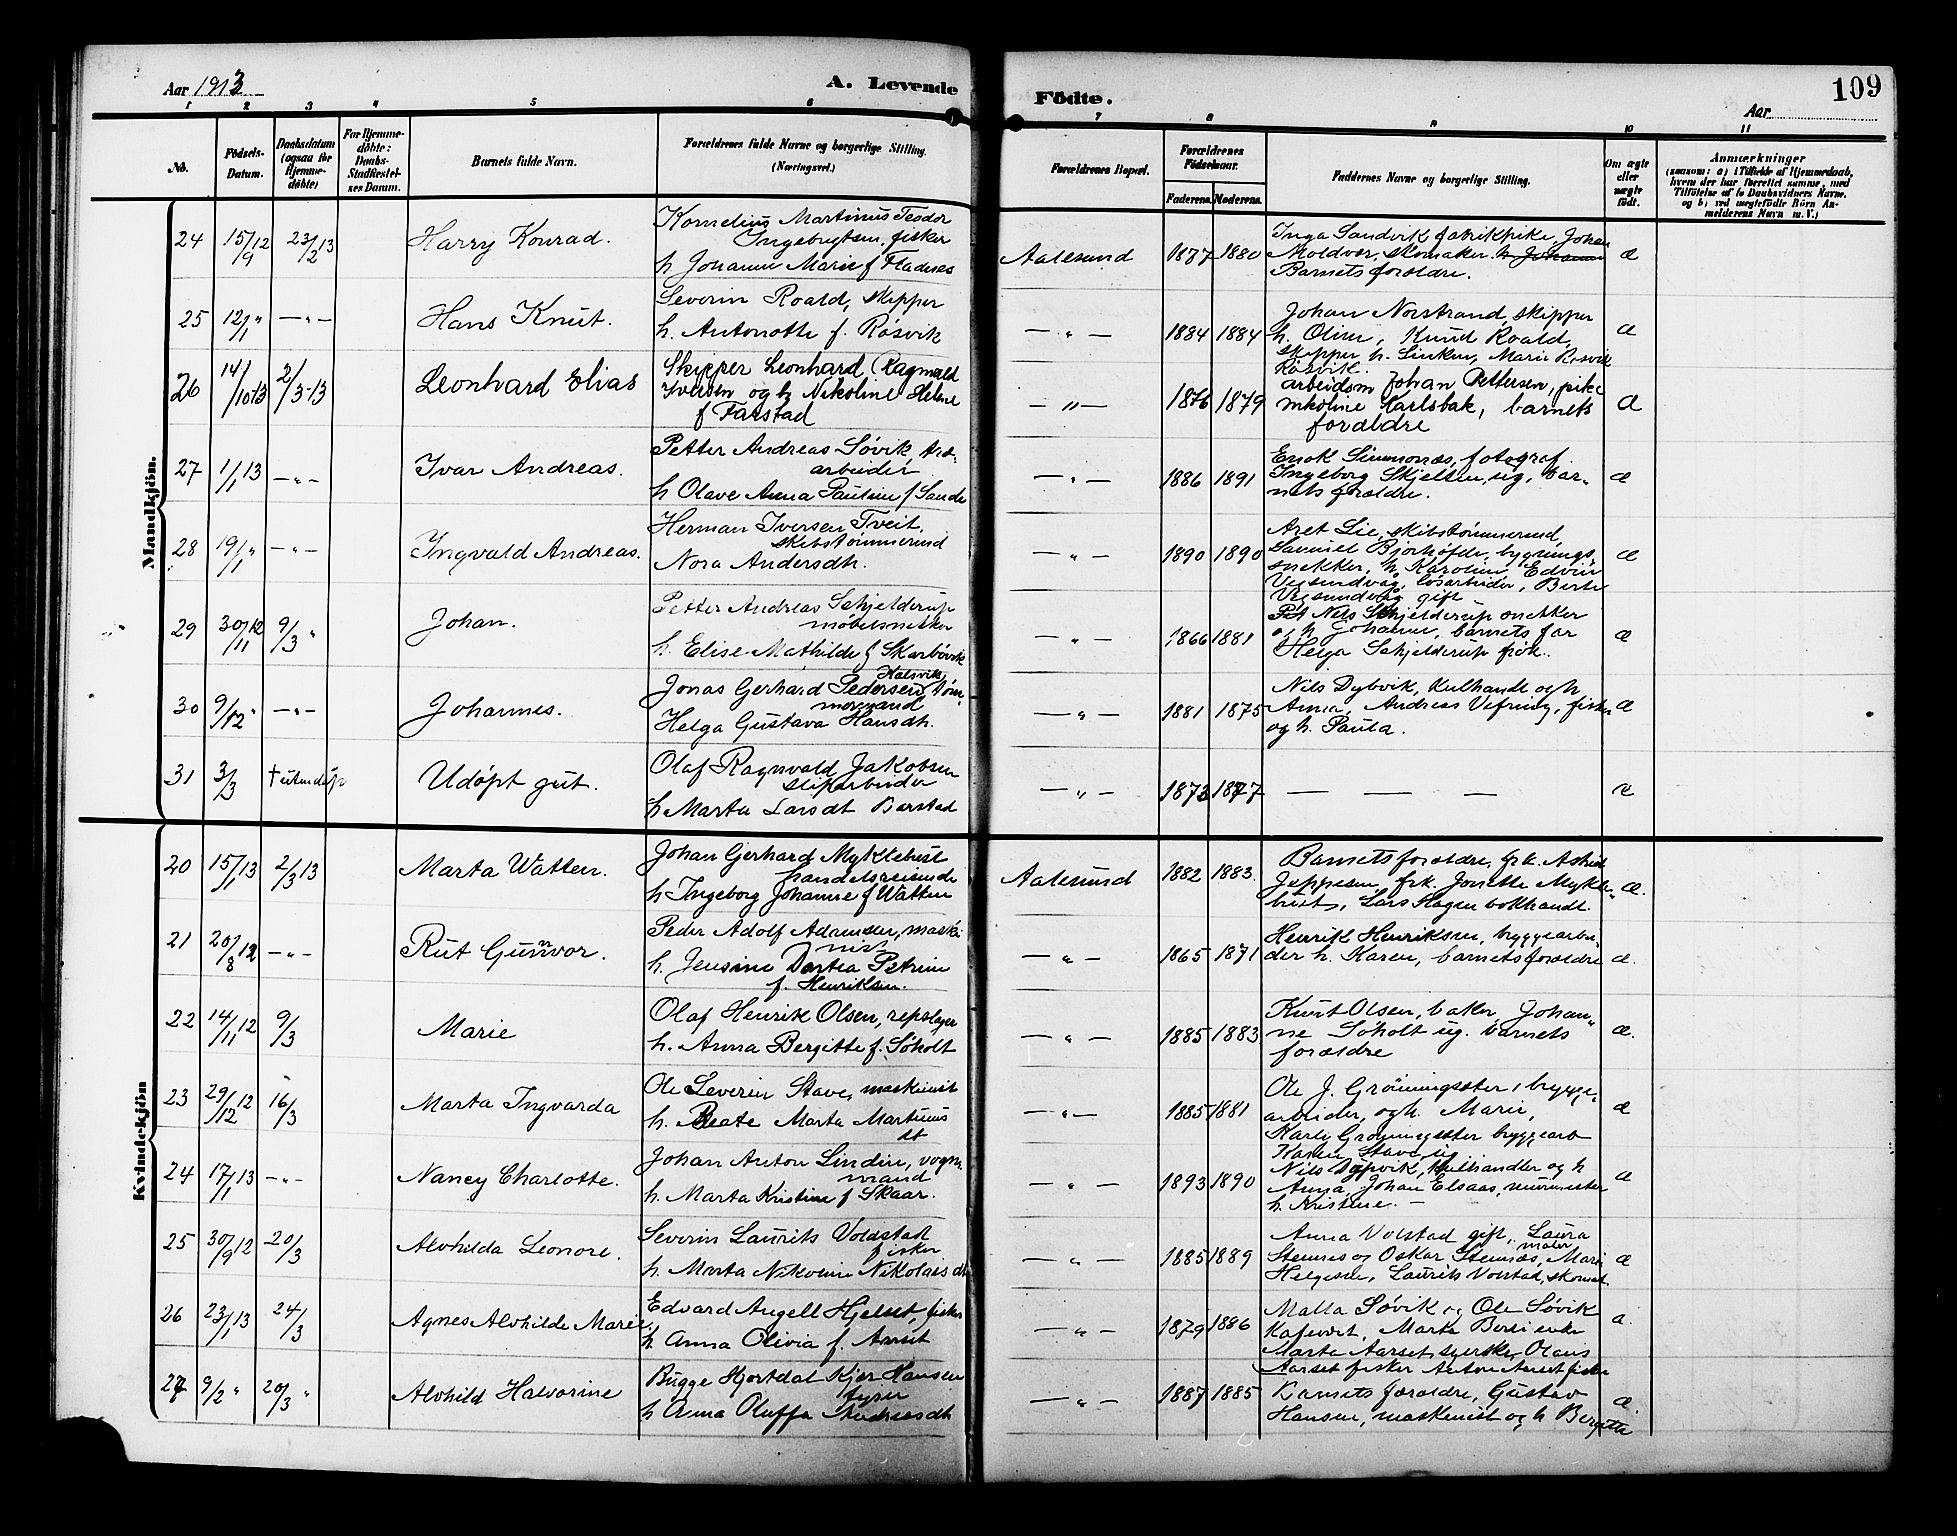 Aar 1913
A. Levende
Födte.
109
Aar
1 2 3 4 5 6 7 8 9 10 11
No.
Födsels-
Datum.
Daabsdatum
(ogsaa for
Hjemme-
döbte)
For Hjemme-
döbte:
Daabs-
Stadfæstel-
ses Datum.
Barnets fulde Navn.
Forældrenes fulde Navne og borgerlige Stilling.
(Næringsvei.)
Forældrenes Bopæl.
Forældrenes
Födselsaar.
Faderens. Moderens.
Faddernes Navne og borgerlige Stilling.
Om ægte
eller
uægte
födt.
Anmærkninger
(saasom: a) i Tilfælde af Hjemmedaab,
hvem der har forrettet samme, med
Tilföielse af to Daabsvidners Navne,
og b) ved uægtefödte Börn An-
melderens Navn m. V.)
Mandkjön.
24 15/9 12 23/2 13 Harry Konrad.
Kornelius Martinus Teodor
Ingebrigtsen, fisker
h. Johanne Marie f. Fladnes
Aalesund 1877 1880
Inga Sandvik fabrikpike, Johan
Moldvær, skomaker. h. Johanne
Barnets forældre.
æ
25 12/1 " — " — Hans Knut.
Severin Roald, skipper
h. Antonette f. Røsvik
— " — 1884 1884
Johan Norstrand, skipper
h. Oline, Knud Roald,
skipper h. Linken, Marie Røsvik
Røsvik.
æ
26 14/10 13 2/3-13 Leonhard Elias
Skipper Leonhard Ragnvald
Iversen og h. Nikoline Helene
f Farstad
— " — 1876 1879
arbeidsm Johan Pettersen, pike
nikoline Karlsbak, barnets
forældre
æ
27 1/1 13 — " — Ivar Andreas.
Petter Andreas Søvik,
arbeider
h Olave Anna Pauline f Sande
— " — 1886 1891
Enok Simmonæs, fotograf.
Ingeborg Skjelten, ug, bar-
nets forældre.
æ
28 19/1 " — " — Ingvald Andreas.
Herman Iversen Tveit,
skibstømmermd
Nora Andersdh.
— " — 1890 1890
Aret Lie, skibstømmermd,
Samuel Bjørhofde, bygnings-
snekker, h. Karoline Edvin
Vegsundvåg, løsarbeider, Berte
Vegsundvåg gift
æ
29 30/11 12 9/3 " Johan.
Petter Andreas Schjelderup
møbelsnekker
h. Elise Mathilde f Skarbøvik
— " — 1866 1881
Pet Nels Schjelderup snekker
og h Johanne, barnets far
Helga Schjelderup frøk.
æ
30 9/12 " — " — Johannes.
Kalsvik,
Jonas Gerhard Pedersen tøm-
mermand
Helga Gustava Hansdh.
— " — 1881 1875
Nils Dybvik, kulhandl og h
Anna, Andreas Vefring, fisker
og h. Paula.
æ
31 3/3 † uten dåp Udøpt gut.
Olaf Ragnvald Jakobsen
sliparbeider
h Marta Larsdt Barstad
— " — 1873 1877 — — — æ
Kvindekjön
20 15/1 13 2/3 13 Marta Watten.
Johan Gerhard Myklebust
handelsreisende
h Ingeborg Johanne f Watten
Aalesund 1882 1883.
Barnets forældre, frk. Astrid
Jeppesen, frk. Jonette Mykle-
bust, Lars Hagen bokhandl.
æ.
21 20/8 12 — " — Rut Gunnvor.
Peder Adolf Adamsen, maski-
nist
h. Jensine Dortea Petrine
f. Henriksen.
— " — 1865 1871
Henrik Henriksen, bryggearbei-
der h. Karen, barnets forældre
æ.
22 14/11 12 9/3 Marie
Olaf Henrik Olsen, repslager
h. Anna Bergitte f. Søholt
— " — 1885 1883
Kurt Olsen, baker, Johan-
ne Søholt ug. barnets
forældre
æ.
23 29/12 12 16/3 Marta Ingvarda
Ole Severin Stave, maskinist
h. Beate Marta Martinus
dt
— " — 1885 1881
Ole J. Grønningsæter, brygge-
arbeider, og h. Marie,
Karl Grønningsæter bryggearb
Karen Stave, ug
æ
24 17/1 13 — " — Nancy Charlotte.
Johan Anton Lindin, vogn-
mand
h. Marta Kristine f Skaar.
— " — 1893 1890
Nils Dypvik, kulhandler og h
Anna, Johan Elsaas, murmester
h. Kristine. —
æ
25 30/9 12 20/3 Alvhilda Leonore.
Severin Laurits Voldstad
fisker
h. Marta Nikoline Nikolais dt
— " — 1885 1889
Anna Volstad gift, Laura
maler
Stennes og Oskar Stennæs, Marie
Helgesen, Laurits Volstad, skomak.
æ
26 23/1 13 24/3 Agnes Alvhilde Marie.
Edvard Angell Hjelset, fisker
h. Anna Olivia f. Aarset
— " — 1879 1886
Malla Søvik og Ole Søvik
Kafevært, Marta enke
Marta Aarset syerske, Olaus
Aarset fisker Anton Aarset fisker
æ.
27 9/2 " 20/3 " Alvhild Halvorine
Bugge Hjortdal Kjer Hansen
fyrer
h Anna Oluffa Andreasdh
— " — 1887 1885
Barnets forældre, Gustav
Hansen, maskinist og h Bergitta
æ.